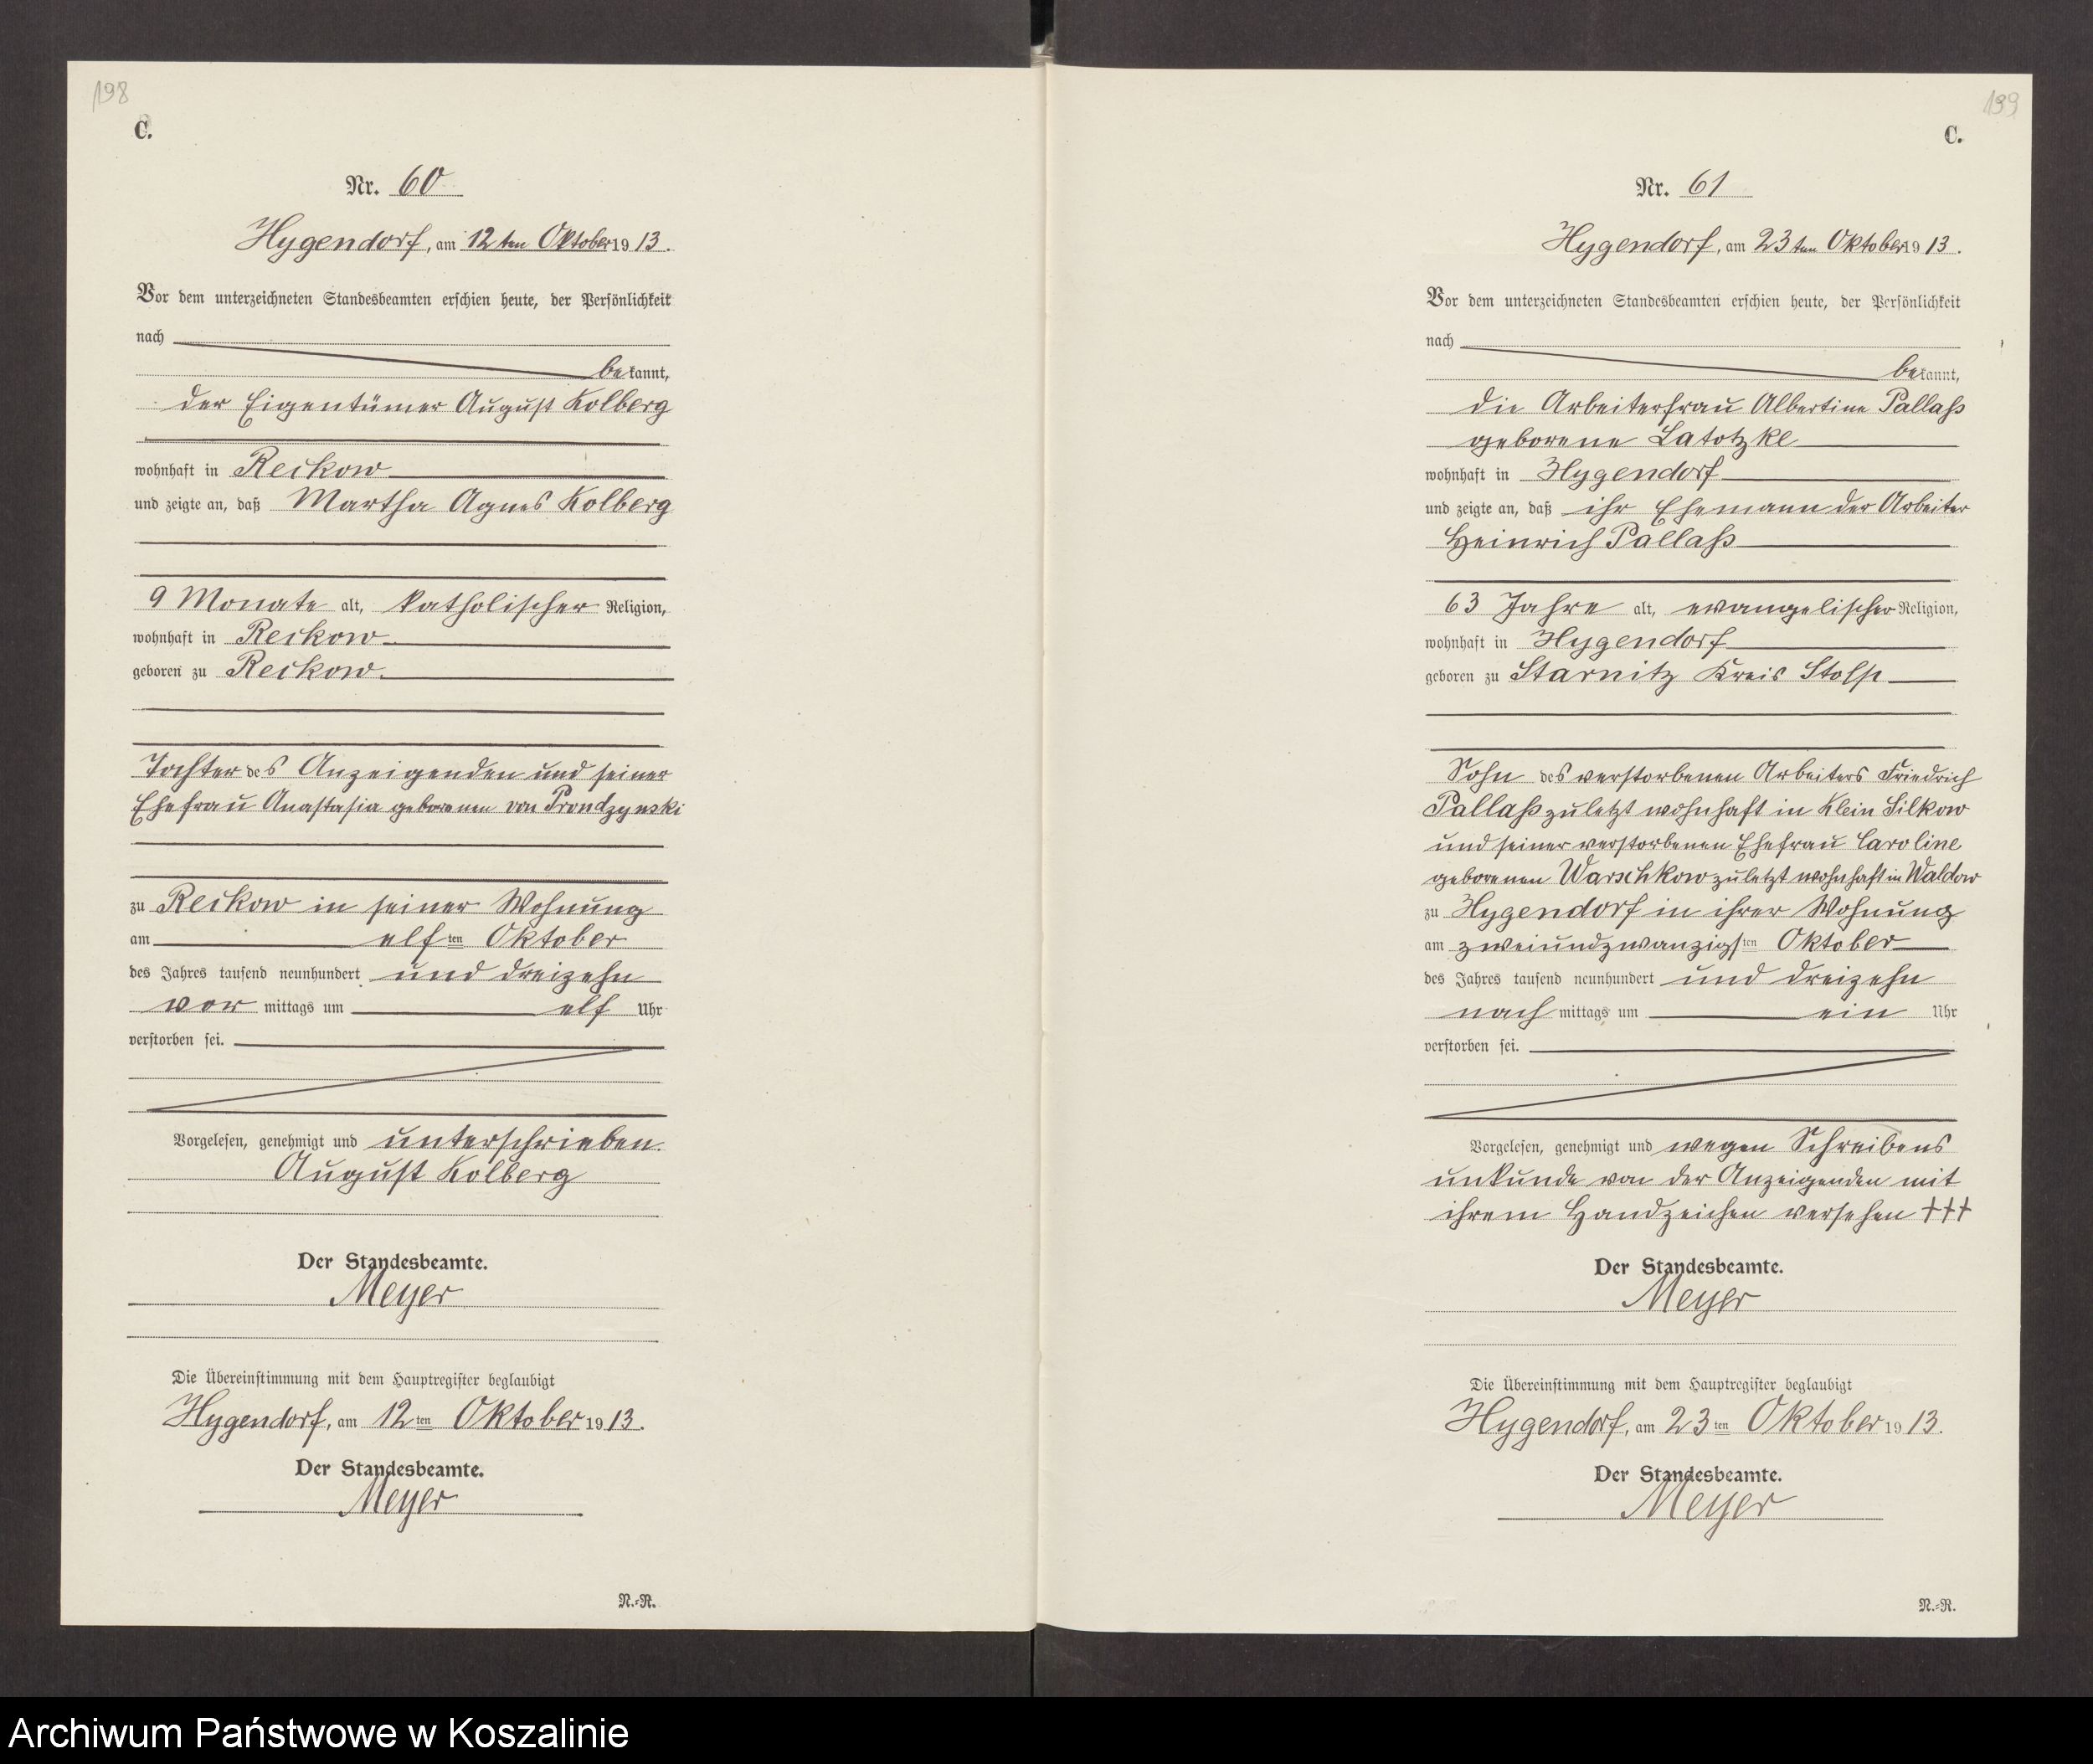 198
C.
Nr. 60
Hygendorf, am 12ten Oktober 1913.
Vor dem unterzeichneten Standesbeamten erschien heute, der Persönlichkeit
nach
bekannt,
der Eigentümer August Kolberg
wohnhaft in Reckow
und zeigte an, daß Martha Agnes Kolberg
9 Monate alt, katholischer Religion,
wohnhaft in Reckow
geboren zu Reckow.
Tochter des Anzeigenden und seiner
Ehefrau Anastasia geborenen von Prondzynski
zu Reckow in seiner Wohnung
am elften Oktober
des Jahres tausend neunhundert und dreizehn
vor mittags um elf Uhr
verstorben sei.
Vorgelesen, genehmigt und unterschrieben.
August Kolberg
Der Standesbeamte.
Meyer
Die Übereinstimmung mit dem Hauptregister beglaubigt
Hygendorf, am 12ten Oktober 1913.
Der Standesbeamte.
Meyer
N.=R.
199
C.
Nr. 61
Hygendorf, am 23ten Oktober 1913.
Vor dem unterzeichneten Standesbeamten erschien heute, der Persönlichkeit
nach
bekannt,
die Arbeiterfrau Albertine Pallaß
geborene Latotzke
wohnhaft in Hygendorf
und zeigte an, daß ihr Ehemann der Arbeiter
Heinrich Pallaß
63 Jahre alt, evangelischer Religion,
wohnhaft in Hygendorf
geboren zu Starnitz Kreis Stolp
Sohn des verstorbenen Arbeiters Friedrich
Pallaß zuletzt wohnhaft in Klein Silkow
und seiner verstorbenen Ehefrau Caroline
geborenen Warschkow zuletzt wohnhaft in Waldow
zu Hygendorf in ihrer Wohnung
am zweiundzwanzigsten Oktober
des Jahres tausend neunhundert und dreizehn
nach mittags um ein Uhr
verstorben sei.
Vorgelesen, genehmigt und wegen Schreibens
unkunde von der Anzeigenden mit
ihrem Handzeichen versehen +++
Der Standesbeamte.
Meyer
Die Übereinstimmung mit dem Hauptregister beglaubigt
Hygendorf, am 23ten Oktober 1913.
Der Standesbeamte.
Meyer
N.=R.
Archiwum Państwowe w Koszalinie